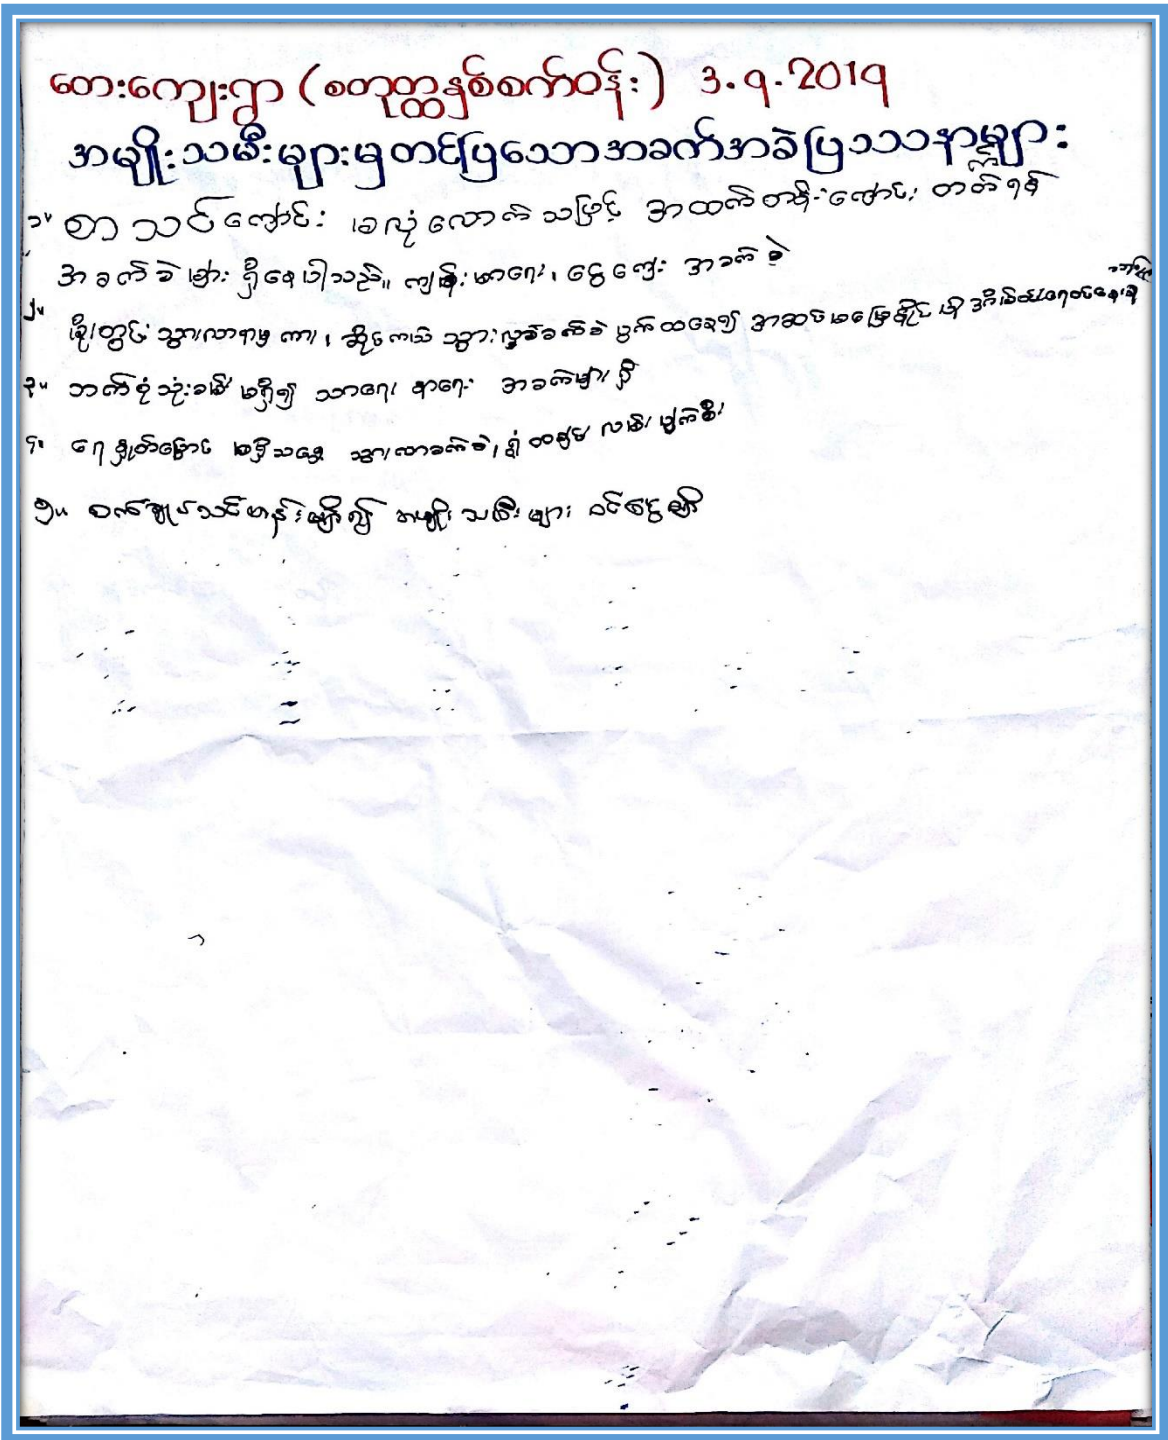 တေးကျေးရွာ (စတုတ္ထနှစ်စက်ဝန်း) 3.9.2019
အမျိုးသမီးများမှတင်ပြသောအခက်အခဲပြဿနာများ
၁။ စာသင်ကျောင်း မလုံလောက်သဖြင့် အထက်တန်းကျောင်း တတ်ရန်
အခက်ခဲများ ရှိနေပါသည်။ ကျန်းမာရေး၊ ငွေကြေး အခက်ခဲ
၂။ မိုးတွင်း သွားလာရာမှ ကား၊ ဆိုင်ကယ် သွားလာခက်ခဲ
၃။ ဘက်စုံသုံးခန်းမရှိ၍ သာရေး နာရေး အခက်များရှိ
၄။ ရေနှုတ်မြောင်း မရှိသဖြင့် သွားလာခက်ခဲ၊ ရွှံ့ထူ လမ်းပျက်စီး
၅။ စက်ချုပ်သင်တန်းမရှိ၍ အမျိုးသမီးများ ဝင်ငွေမရှိ